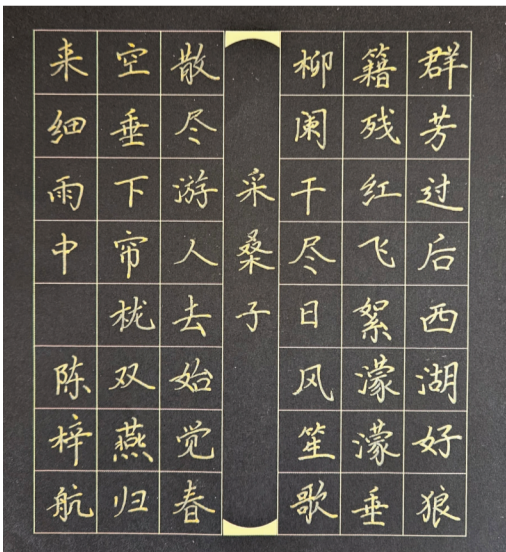 群芳过后西湖好狼
籍残红飞絮濛濛垂
柳阑干尽日风笙歌
采桑子
散尽游人去始觉春
空垂下帘栊双燕归
来细雨中 陈梓航